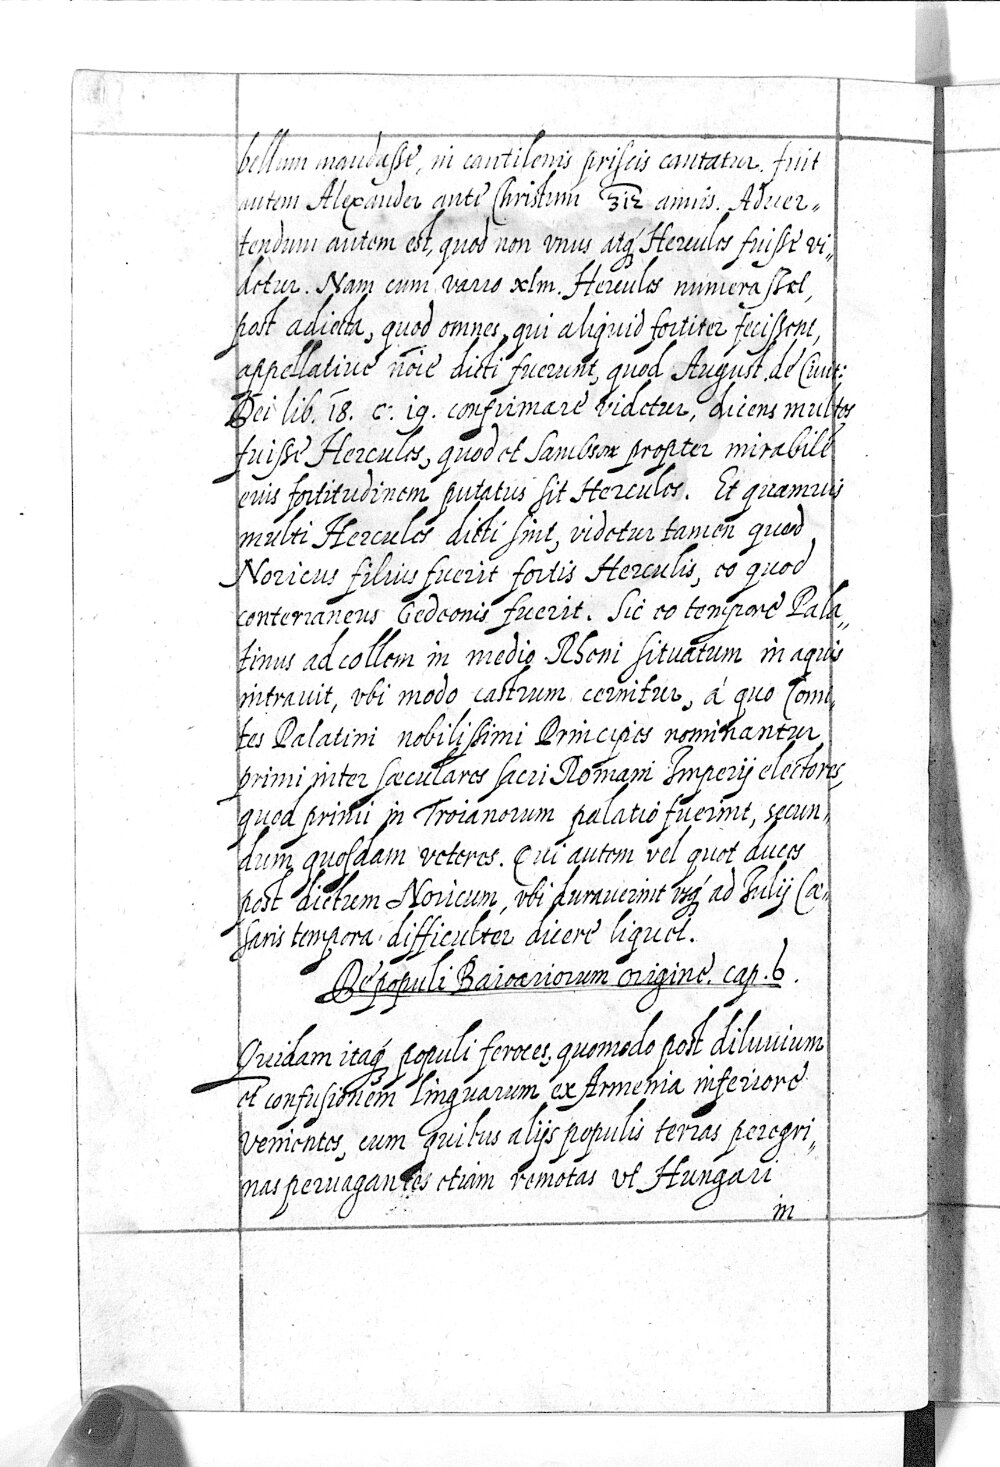 bellum mandasse, in cantilenis priscis cantatur. fuit
autem Alexander ante Christum 312 annis. Aduer„
tendum autem est, quod non vnus atq́ Hercules fuisse vi„
detur. Nam cum varro xlm. Hercules numerasset,
post adiecta, quod omnes, qui aliquid fortiter fecissent,
appellatiue nōie dicti fuerunt, quod August. de Ciuit:
Dei lib. 18. c. 19. confirmare videtur, dicens multos
fuisse Hercules, quod et Sambson propter mirabile
eius fortitudinem putatus sit Hercules. Et quamuis
multi Hercules dicti sint, videtur tamen quod
Noricus filius fuerit fortis Herculis, eo quod
conterraneus Gedeonis fuerit. Sic eo tempore Pala„
tinus ad collem in medio Rheni situatum in aquis
intrauit, vbi modo castrum cernitur, á quo Comi„
tes Palatini nobilissimi Principes nominantur
primi inter sæculares sacri Romani Imperij electores,
quod primi in Troianorum palatio fuerint, secun„
dum quosdam veteres. Qui autem vel quot duces
post dictum Noricum, vbi durauerint vsq́ ad Iulij Cæ„
saris tempora difficulter dicere liquet.
De populi Baioariorum origine. cap. 6.
Quidam itaq́ populi feroces, quomodo post diluuium
et confusionem linguarum ex Armenia inferiore
venientes, cum quibus alijs populis terras peregri„
nas peruagantes etiam remotas vt Hungari
in